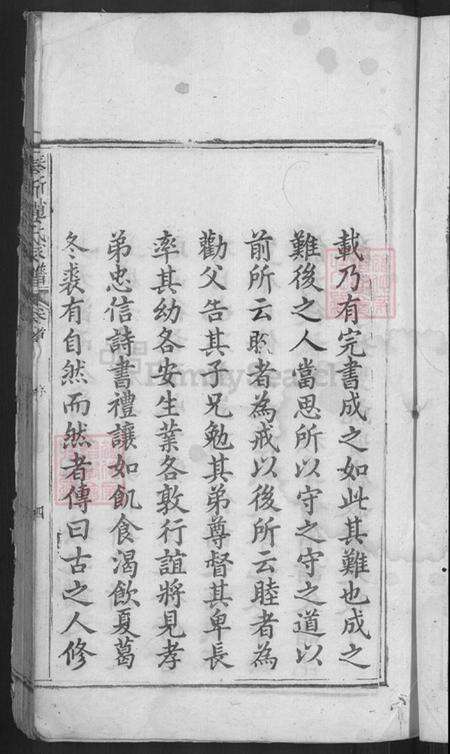 載乃有完書成之如此其難也成之
難後之人當思所以守之守之道以
前所云暌者為戒以後所云睦者為
勸父告其子兄勉其弟尊督其卑長
率其幼各安生業各敦行誼將見孝
弟忠信詩書禮讓如飢食渴飲夏葛
冬裘有自然而然者傳曰古之人修
序
四
FamilySearch